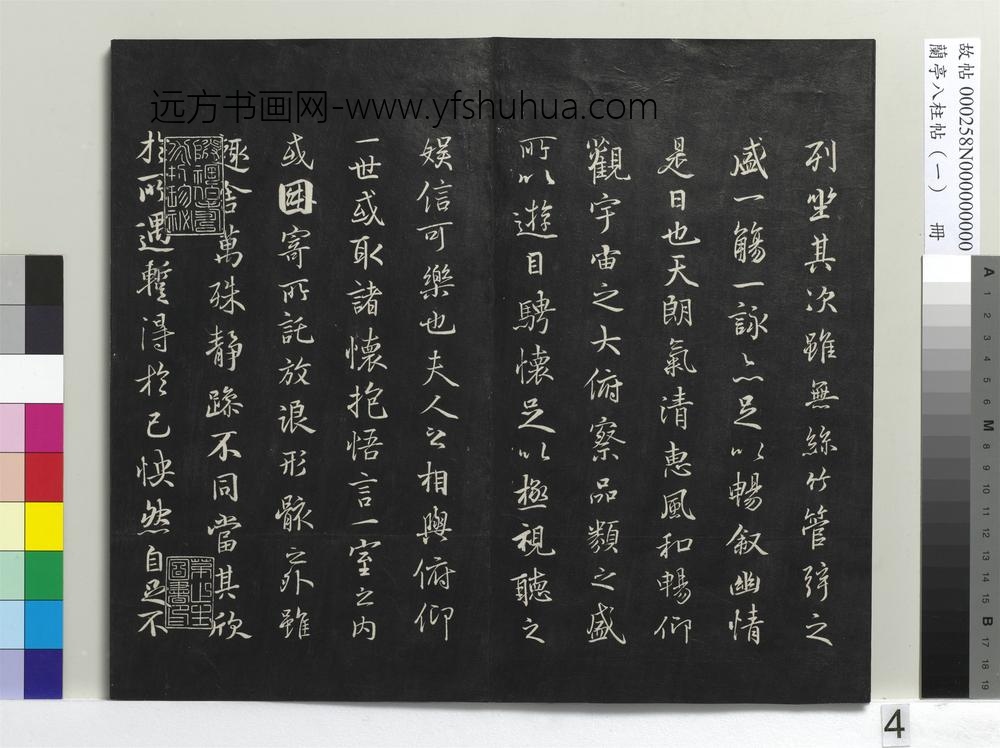 远方书画网-www.yfshuhua.com
故帖 000258N000000000
蘭亭八柱帖(一) 冊
列坐其次雖無絲竹管弦之
盛一觴一詠亦足以暢敘幽情
是日也天朗氣清惠風和暢仰
觀宇宙之大俯察品類之盛
所以遊目騁懷足以極視聽之
娛信可樂也夫人之相與俯仰
一世或取諸懷抱悟言一室之內
或因寄所託放浪形骸之外雖
趣舍萬殊靜躁不同當其欣
於所遇蹔得於己怏然自足不
4
A 1 2 3 4 5 6 M 8 9 10 11 12 13 14 15 B 17 18 19